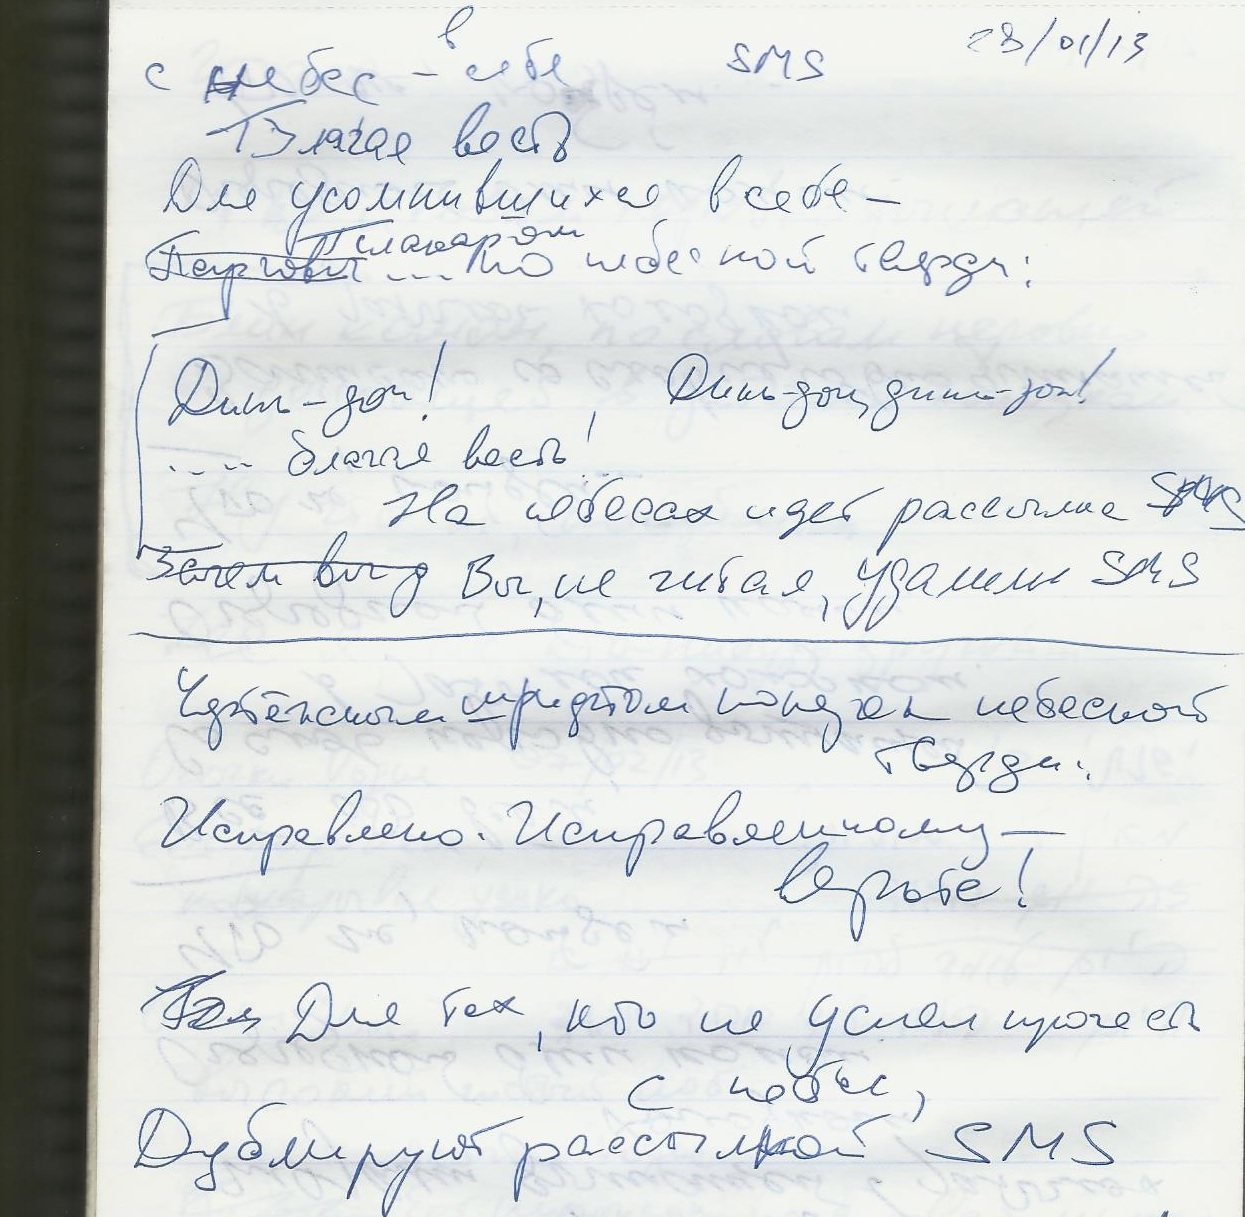 28/01/13
с небес – в себе SMS
Благая весть
Для усомнившихся в себе –
Плакаром
... по небесной тверди:
Динь-дон! Динь-дон, динь-дон!
.... благая весть!
На небесах идет рассылка SMS
Зачем вы д Вы, не читая, удалили SMS
шрифтом небесной
тверди:
Исправлено. Исправленному —
верьте!
Для тех, кто не успел прочесть
с небес,
Дублируют рассылкой SMS